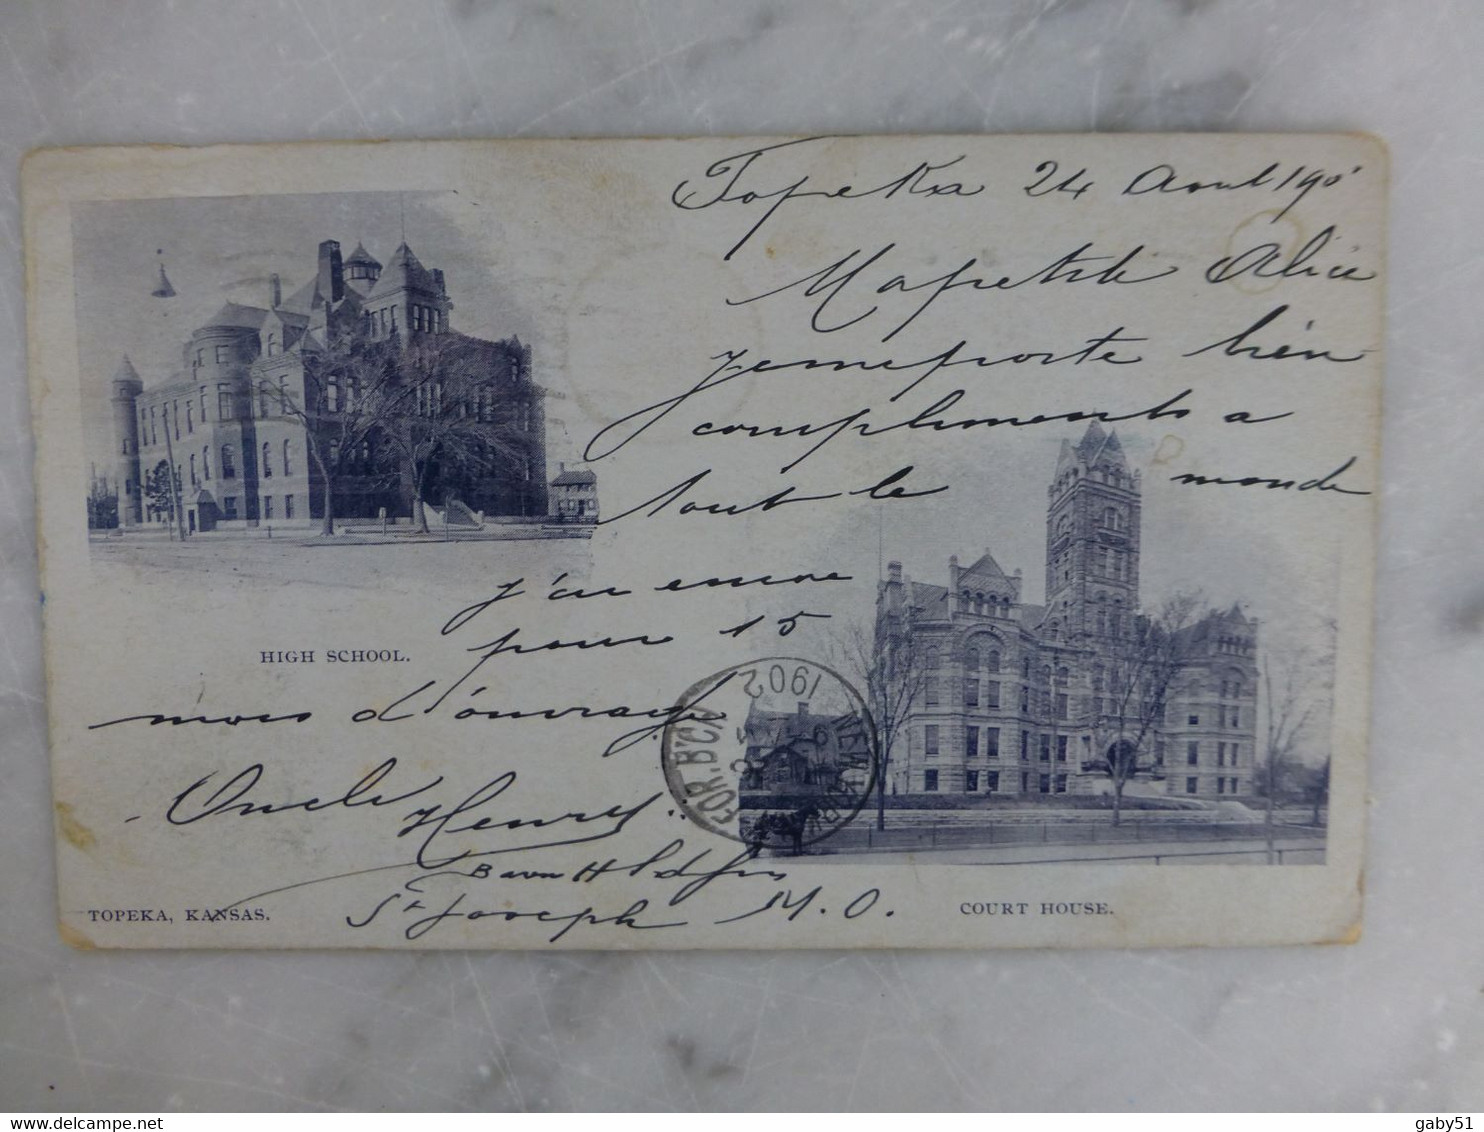 Topeka 24 Aout 190
Ma petite Alice
je me porte bien
compliments a
tout le monde
j'ai encore
pour 15
mois d'ouvrage
Oncle Henry
St Joseph M.O.
HIGH SCHOOL.
TOPEKA, KANSAS.
COURT HOUSE.
NEW YORK
1902
FOR. B'CH
delcampe.net
gaby51